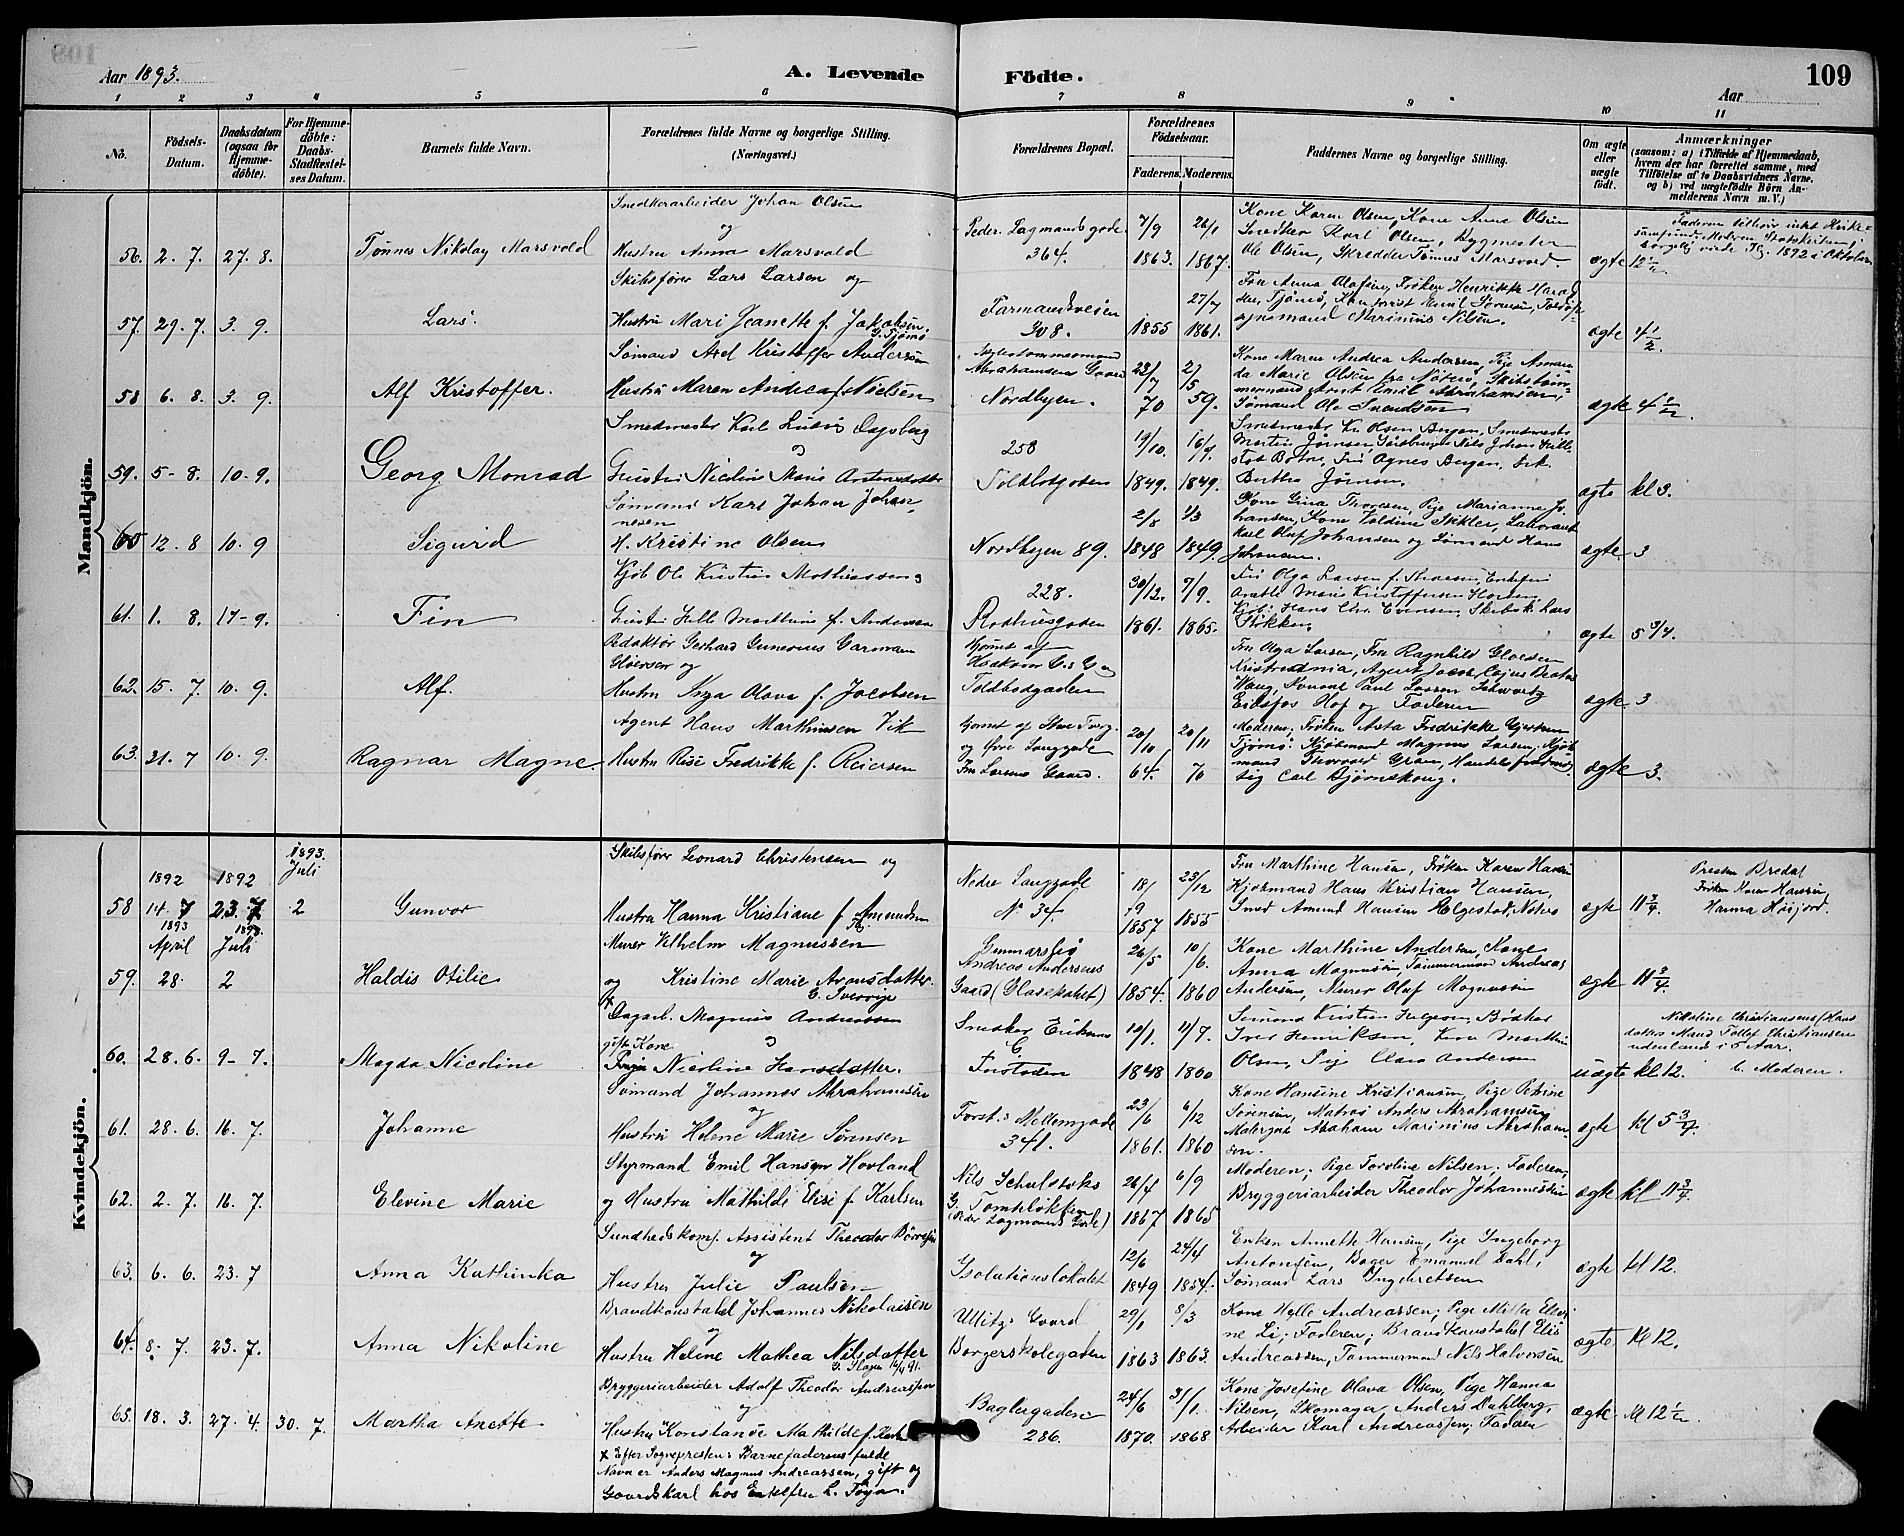 Aar 1893.
A. Levende Födte.
109
Aar
1 2 3 4 5 6 7 8 9 10 11
No.
Födsels-Datum.
Daabsdatum (ogsaa for Hjemme-döbte).
For Hjemme-döbte: Daabs-Stadfæstel-ses Datum.
Barnets fulde Navn.
Forældrenes fulde Navne og borgerlige Stilling.
(Næringsvei.)
Forældrenes Bopæl.
Forældrenes Födselsaar.
Faderens. Moderens.
Faddernes Navne og borgerlige Stilling.
Om ægte eller uægte födt.
Anmærkninger
(saasom: a) i Tilfælde af Hjemmedaab,
hvem der har forrettet samme, med
Tilföielse af to Daabsvidners Navne,
og b) ved uægtefödte Börn An-
melderens Navn m. V.)
Mandkjön.
Snedkerarbeider Johan Olsen
og
56. 2. 7. 27. 8. Tønnes Nikolay Marsvold
Hustru Anna Marsvold
Peder Lagmands gade
364.
7/9 1863. 26/1 1867.
Kone Karen Olsen, Kone Anne Olsen
Snedker Karl Olsen, Bygmester
Ole Olsen, Skredder Tønnes Marsvold.
ægte 12 1/2
Skibsfører Lars Larsen og
57. 29. 7. 3. 9. Lars.
Hustru Mari Jeanette f. Jakobsen.
Farmandsveien
308.
1855 27/7 1861.
Fru Anna Olsen, Frøken Henrikke
Tjømø, Emil Sørensen,
Marinius Nilsen.
ægte 4 1/2.
Sømand Axel Kristoffer Andersen
58 6. 8. 3. 9. Alf Kristoffer.
Hustru Maren Andrea f. Nielsen
Abrahamsens Gaard
Nordbyen.
23/7 70 2/5 59.
Kone Maren Andrea Andersen, Pige Aman-
da Marie Olsen fra Nøterø, Skibstøm-
mermand Arnt Emil Abrahamsen,
Sømand Ole Svendsen
ægte 4 1/2.
Smedmester Karl Ludvig Dagsberg
59. 5- 8. 10- 9. Georg Monrad
Hustru Nicoline Marie Antonsdatter
258
Toldbodgaden
19/10. 1849. 16/4. 1849.
Martin Jørnsen, Nils Johan
Botne, Fru Agnes Bergan, Frk.
Berthe Jørnsen.
ægte kl 3.
Sømand Karl Johan Johan-
nesen
60 12. 8 10. 9 Sigurd
H. Kristine Olsen
Nordbyen 89.
2/8 1848 1/3 1849.
Kone Gina Thoresen, Pige Marianne Jo-
hansen, Kone Valdine Skikler,
Karl Oluf Johansen og Sømand Hans
Johansen.
ægte. 3
Kjøb. Ole Kristian Mathiassen
61. 1. 8. 17- 9. Fin
Hustru Helle Marthine f. Andersen
228.
Raadhusgaden
30/12. 1861. 7/9. 1865.
Fru Olga Larsen f.
Anette Marie Kristoffersen Horten,
Kjøb. Hans Chr. Evensen, Skibsk. Lars
Støkken.
ægte 5 3/4.
Redaktør Gerhard Gunerius Carman
Gløersen og
62. 15. 7. 10. 9. Alf.
Hustru Inga Olava f. Jacobsen
Hjørnet af
Toldbodgaden
Fru Olga Larsen, Fru Ragnhild Gloersen
Kristiania, Agent Jacob Cajus
Waug, Paul Larsen Schwartz
Eiksfos Hof og Faderen
ægte 3
Agent Hans Marthinsen Vik
63. 21. 7 10. 9. Ragnar Magne.
Hustru Resi Fredrikke f. Reiersen
Hjørnet af Store Torg.
og Øvre Langgade
Fru Larsens Gaard.
20/10 64. 20/11 70
Moderen; Frøken Asta Fredrikke Gjertsen
Tjømø. Kjøbmand Magnus Larsen; Kjøb-
mand Thorvald Gran, Handelsfuldmæg-
tig Carl Bjørnskoug.
ægte 3.
Kvindekjön.
1893. Juli
Skibsfører Leonard Christensen og
1892 1892
58 14. 7 23. 7 2 Gunvor
Hustru Hanna Kristiane f. Amundsen
Nedre Langgade
No 34.
18/9 1857 23/12 1855
Fru Marthine Hansen, Frøken Karen Hansen
Kjøbmand Hans Kristian Hansen,
Smed Amund Hansen Helgestad, Nøterø
ægte 11 3/4.
Presten Bredal
Frøken Karen Hansen
Hanna Høijord.
1893 1893.
April Juli
Murer Vilhelm Magnussen
59. 28. 2 Haldis Otilie
og Kristine Marie Aronsdatter.
G. Sverrig
Gunnarsbø
Andreas Andersens
Gaard (Glasskabet)
26/5 1854. 10/6. 1860
Kone Marthine Andersen, Kone
Anna Magnusen, Tømmermand Andreas
Andersen, Murer Oluf Magnussen
ægte 11 3/4.
Dagarb. Magnus Andreassen
gift Kone
60. 28. 6. 9- 7. Magda Nicoline
Pige Nicoline Hansdatter.
Snedker Eriksens
G
Forstaden
10/1. 1848 11/7. 1860
Sømand Kristian Helgesen, Bødker
Iver Henriksen, Kone Marthe
Olsen, Pige Clara Andersen
uægte kl 12.
Nikoline Christiansens/Hans
datters Mand Tollef Christiansen
udenlands i 5 Aar.
b. Moderen.
Sømand Johannes Abrahamsen
og
61. 28. 6. 16. 7. Johanne
Hustru Helene Marie Sørensen
Forst. Mellemgade
341.
23/6 1861. 6/12 1860
Kone Hansine Kristiansen, Pige Petrine
Sørensen, Matros Anders Abrahamsen
Malergut Abraham Marinius Abraham-
sen.
ægte kl 5 3/4.
Styrmand Emil Hansen Hovland
62. 2. 7. 16. 7. Elevine Marie
og Hustru Mathilde Elise f. Karlsen
Nils Schulstoks
G. Tomteløkken
(Peder Lagmands Gade)
26/4 1867 6/9 1865
Moderen; Pige Karoline Nilsen; Faderen;
Bryggeriarbeider Theodor Johannessen
ægte kl 11 3/4.
Sundhedskom. Assistent Theodor Børresen
og
63. 6. 6. 23. 7 Anna Kathinka
Hustru Julie Paulsen
Isolationslokalet
12/6 1849 24/4 1854.
Enken Annette Hansen, Pige Ingeborg
Antonsen, Bager Emanuel Dahl,
Sømand Lars Ingebretsen
ægte kl 12.
Brandkonstabel Johannes Nikolaisen
og
64. 8. 7. 23. 7. Anna Nikoline
Hustru Helene Mathea Nilsdatter
Ullitz. Gaard
Borgerskolegaden
29/1 1863 8/3 1863.
Kone Helle Andreassen; Pige Milla Elevi-
ne Li; Faderen; Brandkonstabel Elis
Andreassen, Tømmermand Nils Halvorsen
ægte kl 12.
Bryggeriarbeider Adolf Theodor Andreassen
og
65. 18. 3. 27. 4. 30. 7. Martha Anette
Hustru Konstanse Mathilde f.
Baglergaden
286.
24/6 1870. 3/1 1868
Kone Josefine Olava Olsen, Pige Hanna
Nilsen, Skomager Anders Dahlberg,
Arbeider Karl Andreassen, Faderen
ægte kl 12 1/2
x Efter Sognepresten: Barnefaderens fulde
Navn er Anders Magnus Andreassen, gift og
Gaardskarl hos Enkefru L. Føyn.